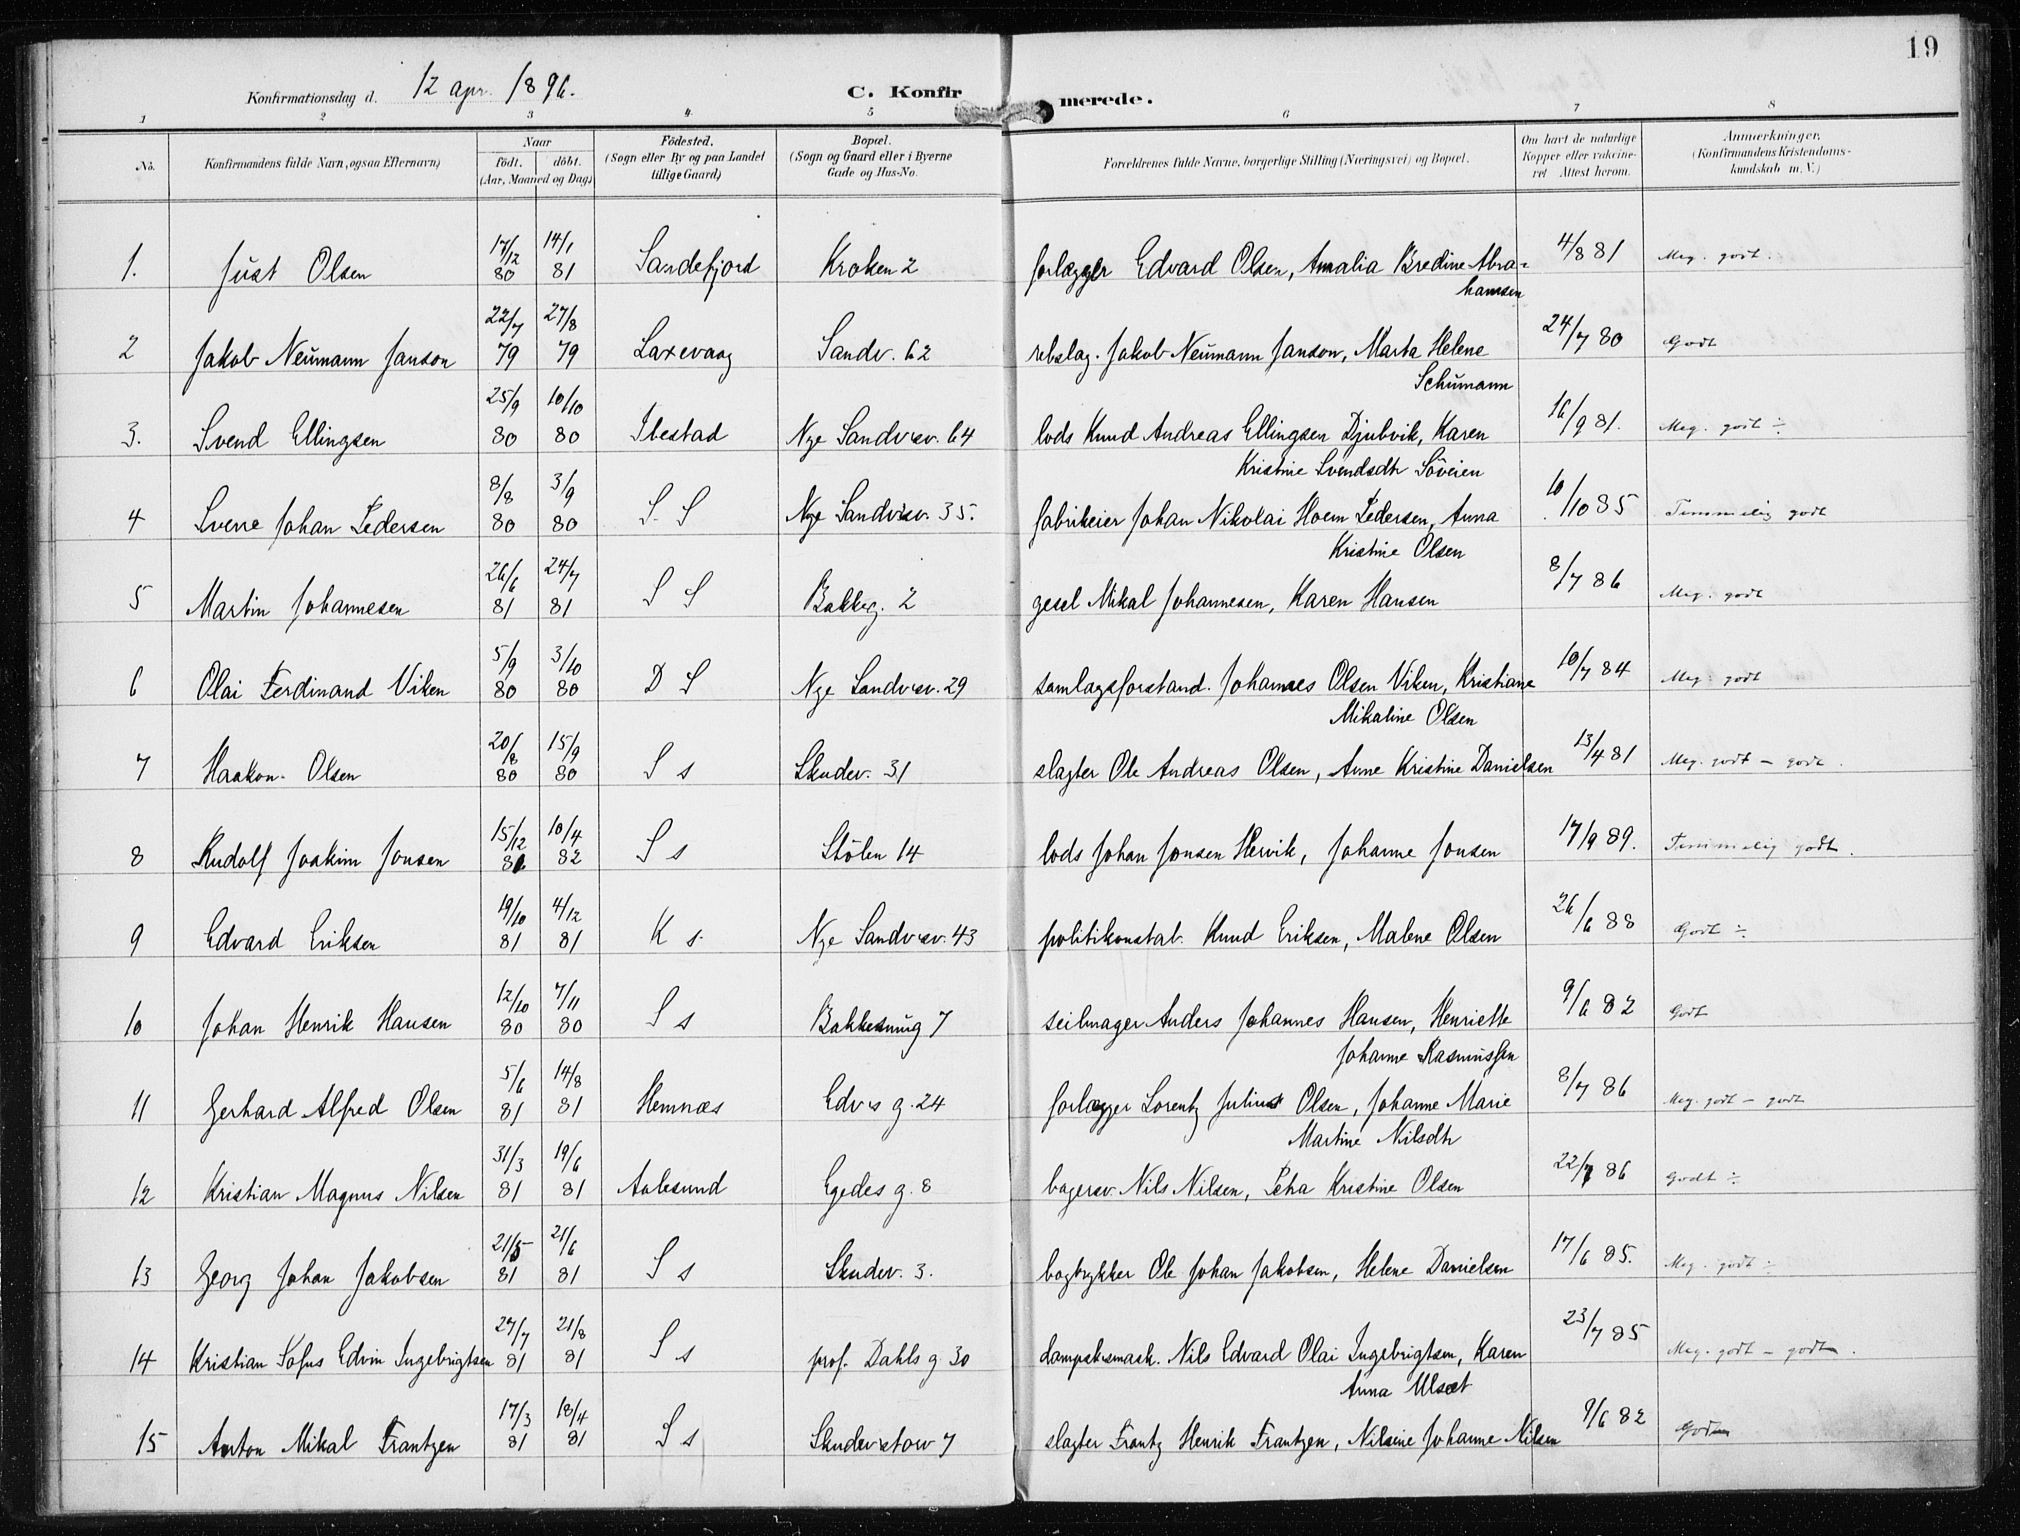 19
Konfirmationsdag d. 12 apr. 1896.
C. Konfirmerede.
1 2 3 4 5 6 7 8
No.
Konfirmandens fulde Navn, ogsaa Efternavn)
Naar
født. døbt.
(Aar, Maaned og Dag)
Fødested.
(Sogn eller By og paa Landet
tillige Gaard)
Bopæl.
(Sogn og Gaard eller i Byerne
Gade og Hus-No.
Forældrenes fulde Navne, borgerlige Stilling (Næringsvei) og Bopæl.
Om havt de naturlige
Kopper eller vakcine-
ret Attest herom.
Anmærkninger.
(Konfirmandens Kristendoms-
kundskab m. V.)
1. Just Olsen 17/12 80 14/1 81 Sandefjord Kroken 2 forlægger Edvard Olsen, Amalia Bredine Abra- 4/8 81 Meg. godt.
hamsen
2 Jakob Neumann Janson 22/7 79 27/8 79 Laxevaag Sandv. 62 rebslag. Jakob Neumann Janson, Marta Helene 24/7 80 Godt
Schumann
3. Svend Ellingsen 25/9 80 10/10 80 Ibestad Nye Sandvsv. 64 lods Knud Andreas Ellingsen Djubvik, Karen 16/9 81. Meg. godt ÷
Kristine Svendsdtr Søveien
4 Sverre Johan Pedersen 8/8 80 3/9 80 S. S Nye Sandvsv. 35. fabrikeier Johan Nikolai Hoem Pedersen, Anna 10/10 85 Temmelig godt
Kristine Olsen
5 Martin Johannesen 26/6 81 24/7 81 S S Bakkeg. 2 gesel Mikal Johannesen, Karen Hansen 8/7 86 Meg. godt
6 Olai Ferdinand Viken 5/9 80 3/10 80 D S Nye Sandvsv. 29 samlagsforstand. Johannes Olsen Viken, Kristiane 10/7 84 Meg. godt
Mikaline Olsen
7 Haakon Olsen 20/8 80 15/9 80 S s Skudev. 31 slagter Ole Andreas Olsen, Anne Kristine Danielsen 13/4 81 Meg. godt - godt.
8 Rudolf Joakim Jonsen 15/12 81 10/4 82 S s Stølen 14 lods Johan Jonsen Hervik, Johanne Jonsen 17/9 89. Temmelig godt.
9 Edvard Eriksen 19/10 81 4/12 81 K s. Nye Sandvsv. 43 politikonstab. Knud Eriksen, Malene Olsen 26/6 88 Godt ÷
10 Johan Henrik Hansen 12/10 80 7/11 80 S s Bakkesmug 7 seilmager Anders Johannes Hansen, Henriette 9/6 82 Godt
Johanne Rasmussen
11 Gerhard Alfred Olsen 5/6 81 14/8 81 Hemnæs Edvs g. 24 forlægger Lorentz Julius Olsen, Johanne Marie 8/7 86 Meg. godt - godt
Martine Nilsdtr
12 Kristian Magnus Nilsen 31/3 81 19/6 81 Aalesund Egedes g. 8 bagersv. Nils Nilsen, Petra Kristine Olsen 22/7 86 Godt ÷
13 Georg Johan Jakobsen 21/5 81 21/6 81 S s Skudev. 3. bogtrykker Ole Johan Jakobsen, Helene Danielsen 17/6 85. Meg. godt ÷
14 Kristian Sofus Edvin Ingebrigtsen 27/7 81 21/8 81 S s prof. Dahls g. 30 dampsksmask. Nils Edvard Olai Ingebrigtsen, Karen 23/7 85 Meg. godt - godt.
Anna Ulset
15 Anton Mikal Frantzen 17/3 81 18/4 81 S s Skudevstøv 7 slagter Frantz Henrik Frantzen, Nilsine Johanne Nilsen 9/6 82 Godt